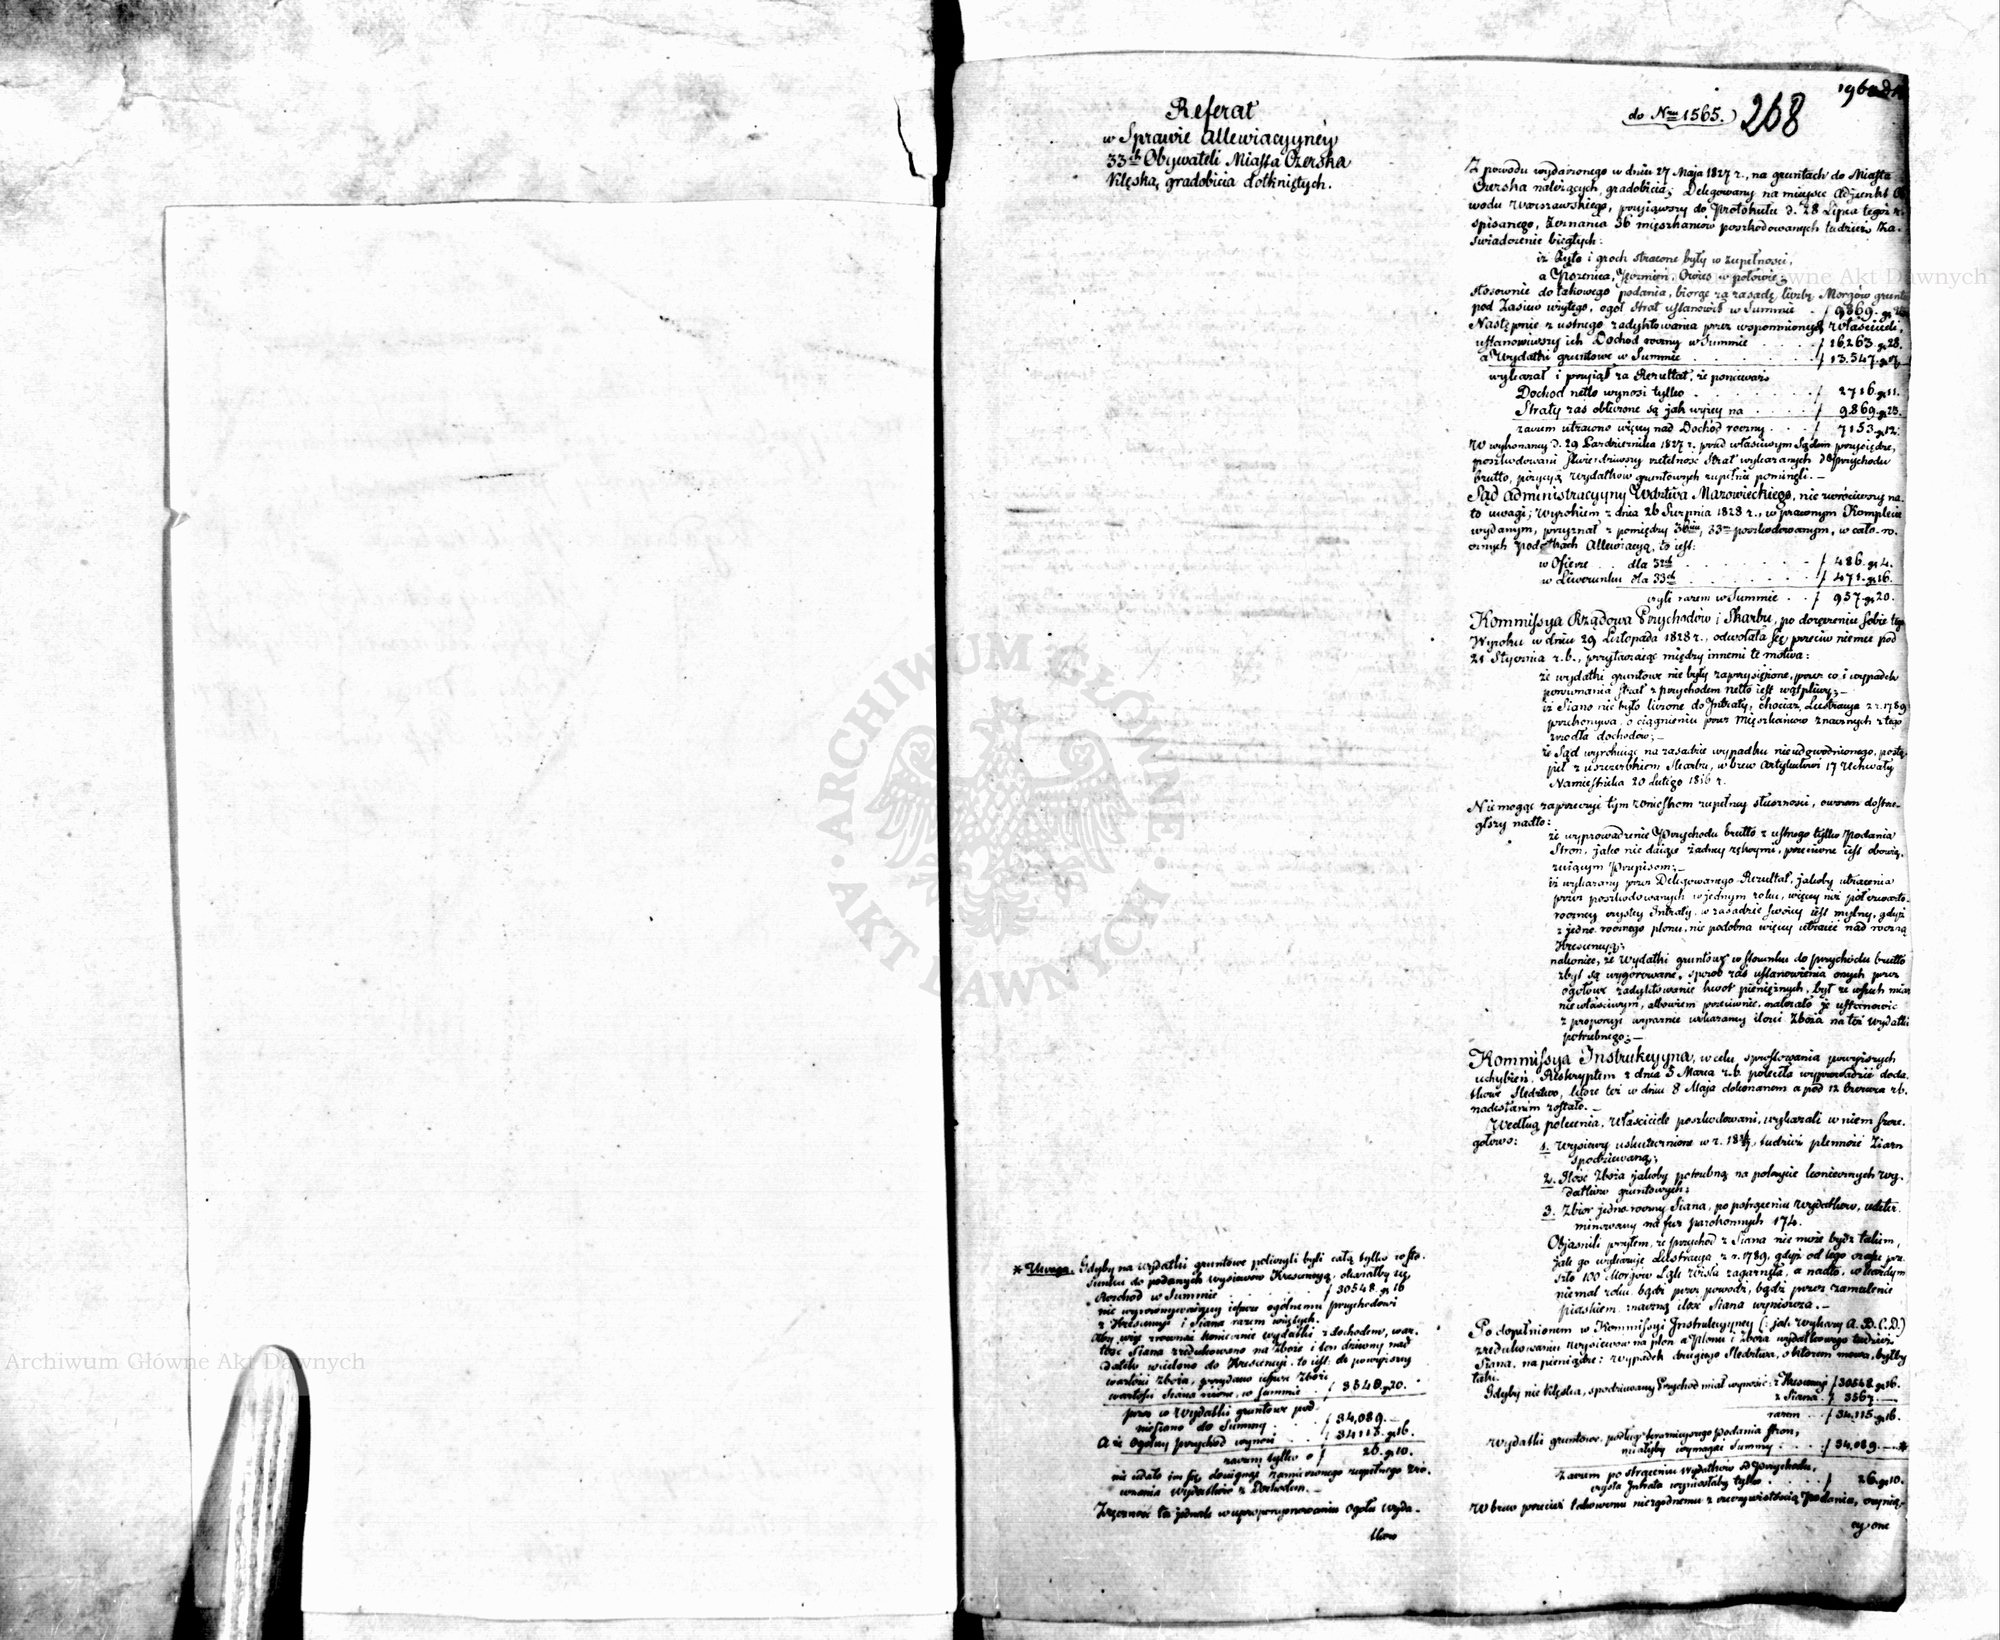 Referat
w Sprawie Allewiacyyney
33ch Obywateli Miasta Czerska
klęską gradobicia dotkniętych.
do Nru 1565.
268
Z powodu wydarzonego w dniu 27 Maja 1827 r., na gruntach do Miasta
Czerska należących, gradobicia; Delegowany na mieysce Adjunkt Ob
wodu Warszawskiego, przyiąwszy do Protokułu d. 28 Lipca tegoż r.
spisanego, Zeznania 36 mięszkańców poszkodowanych tudzież Za-
świadczenie biegłych:
iż Żyto i groch stracone były w zupełności,
a Pszenica, Jęczmień, Owies w połowie;
stosownie do takowego podania, biorąc za zasadę liczbę Morgów gruntu
pod Zasiew wziętego, ogół strat ustanowił w Summie . f 9869. gr 23.
Następnie z ustnego zadyktowania przez wspomnionych Właścicieli,
ustanowiwszy ich Dochod roczny w Summie . . . . f 16,263. gr 28.
a Wydatki gruntowe w Summie . . . . . . f 13,547. gr 17.
wykazał i przyiął za Rezultat, że ponieważ
Dochod netto wynosi tylko . . . . . . f 2716. gr 11.
Straty zaś obliczone są jak wyżey na . . . . f 9869. gr 23.
zatem utracono więcey nad Dochod roczny . . . f 7153. gr 12.
W wykonaney d. 29 Października 1827 r. przed właściwym Sądem przysiędze,
poszkodowani stwierdziwszy rzetelność Strat wykazanych i Przychodu
brutto, pozycyą Wydatków gruntowych zupełnie pominęli. —
Sąd Administracyyny Wdztwa Mazowieckiego, nie zwróciwszy na
to uwagi; Wyrokiem z dnia 26 Sierpnia 1828 r., w prawnym Komplecie
wydanym, przyznał z pomiędzy 36ciu, 33m poszkodowanym, w cało-ro-
cznych Podatkach Allewiacyą, to iest:
w Ofierze . . dla 32ch . . . . . . . f 486. gr 4.
w Liwerunku dla 33ch . . . . . . . f 471. gr 16.
czyli razem w Summie . . f 957. gr 20.
Kommissya Rządowa Przychodów i Skarbu, po doręczeniu sobie tego
Wyroku w dniu 29 Listopada 1828 r., odwołała się przeciw niemu pod
21 Stycznia r. b., przytaczaiąc między innemi te motiva:
że wydatki gruntowe nie były zaprzysiężone, przez co i wypadek
porównania strat z przychodem netto iest wątpliwy; —
iż Siano nie było liczone do Intraty, chociaż Lustracya z r. 1789
przekonywa o ciągnieniu przez Mięszkańców znacznych z tego
źrodła dochodów; —
że Sąd wyrokuiąc na zasadzie wypadku nieudowodnionego, postą-
pił z uszczerbkiem Skarbu, wbrew Artykułowi 17 Uchwały
Namiestnika 20 Lutego 1816 r.
Nie mogąc zaprzeczyć tym wnioskom zupełney słuszności, owszem dostrze-
głszy nadto:
że wyprowadzenie Przychodu brutto z ustnego tylko Podania
Stron, jako nie daiące żadney rękoymi, przeciwne iest obowią-
zuiącym Przepisom; —
iż wykazany przez Delegowanego Rezultat, jakoby utracenia
przez poszkodowanych w jednym roku, więcey niż półczwarta-
roczney czystey Intraty, w zasadzie swoiey iest mylny, gdyż
z jedno-rocznego plonu, nie podobna więcey utracić nad roczną
Krescencyą;
nakoniec, że Wydatki gruntowe w stosunku do przychodu brutto
zbyt są wygórowane, sposób zaś ustanowienia onych przez
ogółowe zadyktowanie kwot pieniężnych, był ze wszech miar
niewłaściwym, albowiem przeciwnie, należało je ustanowić
z proporcyi wyraźnie wskazaney ilości Zboża na też Wydatki
potrzebnego; —
Kommissya Instrukcyyna, w celu sprostowania powyższych
uchybień, Reskryptem z dnia 5 Marca r. b. poleciła wyprowadzić doda-
tkowe Sledztwo, które też w dniu 8 Maja dokonanem a pod 12 Czerwca rb.
nadesłanem zostało. —
Według polecenia, Właściciele poszkodowani, wykazali w niem szcze-
gółowo:
1. Wysiewy uskutecznione w r. 1826/7, tudzież plenność Ziarn
spodziewaną;
2. Ilość Zboża jakoby potrzebną na pokrycie koniecznych wy-
datków gruntowych;
3. Zbior jedno-roczny Siana, po potrąceniu Wydatków, udeter-
minowany na fur parokonnych 174.
Objaśnili przytem, że przychod z Siana nie może bydź takim,
jak go wykazuje Lustracya z r. 1789, gdyż od tego czasu prze-
szło 100 Morgów Łąk Wisła zagarnęła, a nadto, w każdym
niemal roku, bądź przez powodzi, bądź przez zamulenie
piaskiem, znaczną ilość Siana wyniszcza. —
Po dopełnionem w Kommissyi Instrukcyyney (: jak Wykazy A. B. C. D.)
zredukowaniu Wysiewów na plon a Plonu i Zboża wydatkowego tudzież
Siana, na pieniądze; wypadek drugiego Sledztwa, o którem mowa, byłby
taki.
Gdyby nie klęska, spodziewany Przychod miał wynosić: z Krescencyi f 30548. gr 16.
z Siana f 3567. —
razem . f 34,115. gr 16.
Wydatki gruntowe, podług teraźnieyszego podania Stron,
miałyby wymagać Summy . . . . f 34,089. — *
Zatem po strąceniu Wydatków od Przychodu,
czysta Intrata wynosiłaby tylko . . . . . f 26. gr 10.
Wbrew przecież takowemu niezgodnemu z rzeczywistością Podaniu,
cy one
* Uwaga. Gdyby na wydatki gruntowe policzyli byli całą tylko w sto-
sunku do podanych wysiewów Krescencyą, okazałby się
Rozchod w Summie . . . . . f 30548. gr 16
nie wyrównywaiący ieszcze ogólnemu przychodowi
z Krescencyi i Siana razem wziętych.
Aby więc zrównać koniecznie wydatki z dochodem, war-
tość Siana zredukowano na Zboże i ten dziwny nad
datek wcielono do Krescencyi, to iest: do powyższey
wartości zboża, przydano ieszcze zboże
wartości Siana równe, w Summie . . f 3540. gr 20.
przez co Wydatki gruntowe pod-
niesiono do Summy . . . f 34,089. —
A że ogólny przychod wynosi . . f 34115. gr 16.
zatem tylko o f 26. gr 10.
nie udało im się dosięgnąć zamierzonego zupełnego zró-
wnania Wydatków z Dochodem. —
Zręczność ta jednak w uproporcyonowaniu Ogółu Wyda-
tków
ARCHIWUM GŁÓWNE AKT DAWNYCH
Archiwum Główne Akt Dawnych
Archiwum Główne Akt Dawnych